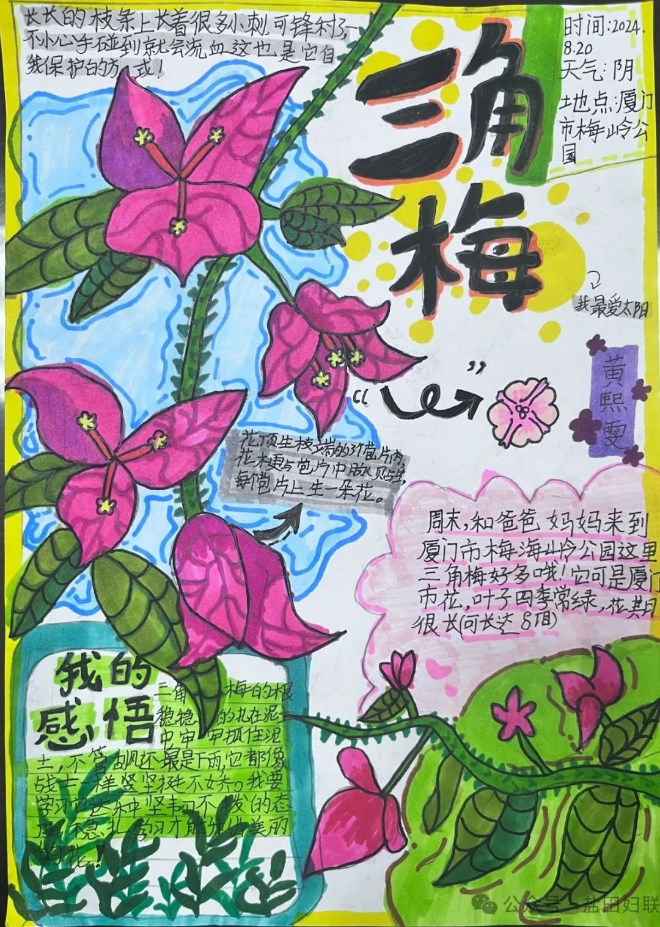 长长的枝条上长着很多小刺,可锋利了,
不小心手碰到就会流血,这也是它自
我保护的方式!
三角
梅
时间:2024.
8.20
天气:阴
地点:厦门
市梅岭公
园
我最爱太阳
黄熙雯
花顶生枝端的3个苞片内,
花梗与苞片中脉贴生,
每个苞片上生一朵花。
周末,和爸爸妈妈来到
厦门市梅海岭公园这里
三角梅好多哦!它可是厦门
市花,叶子四季常绿,花期
很长(可长达8月)
我的
感悟
三角梅的根
稳稳的扎在泥
中牢牢抓住泥
土,不管刮风还是下雨,它都像
战士一样竖坚挺不
我要
学习它这种坚韧不拔的态
度
美丽
公众号 盐田妇联